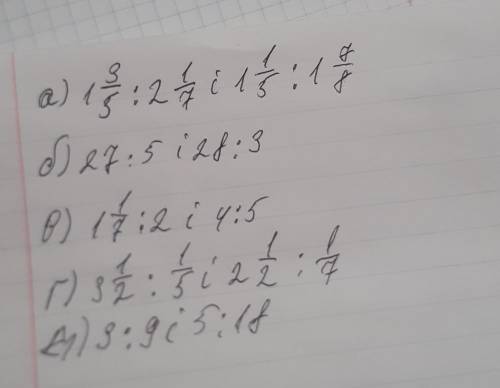 а) 1 3/5 : 2 1/7 і 1 1/5 : 1 7/8
б) 27 : 5 і 28 : 3
в) 1 1/7 : 2 і 4 : 5
г) 3 1/2 : 1/5 і 2 1/2 : 1/7
д) 3 : 9 і 5 : 18